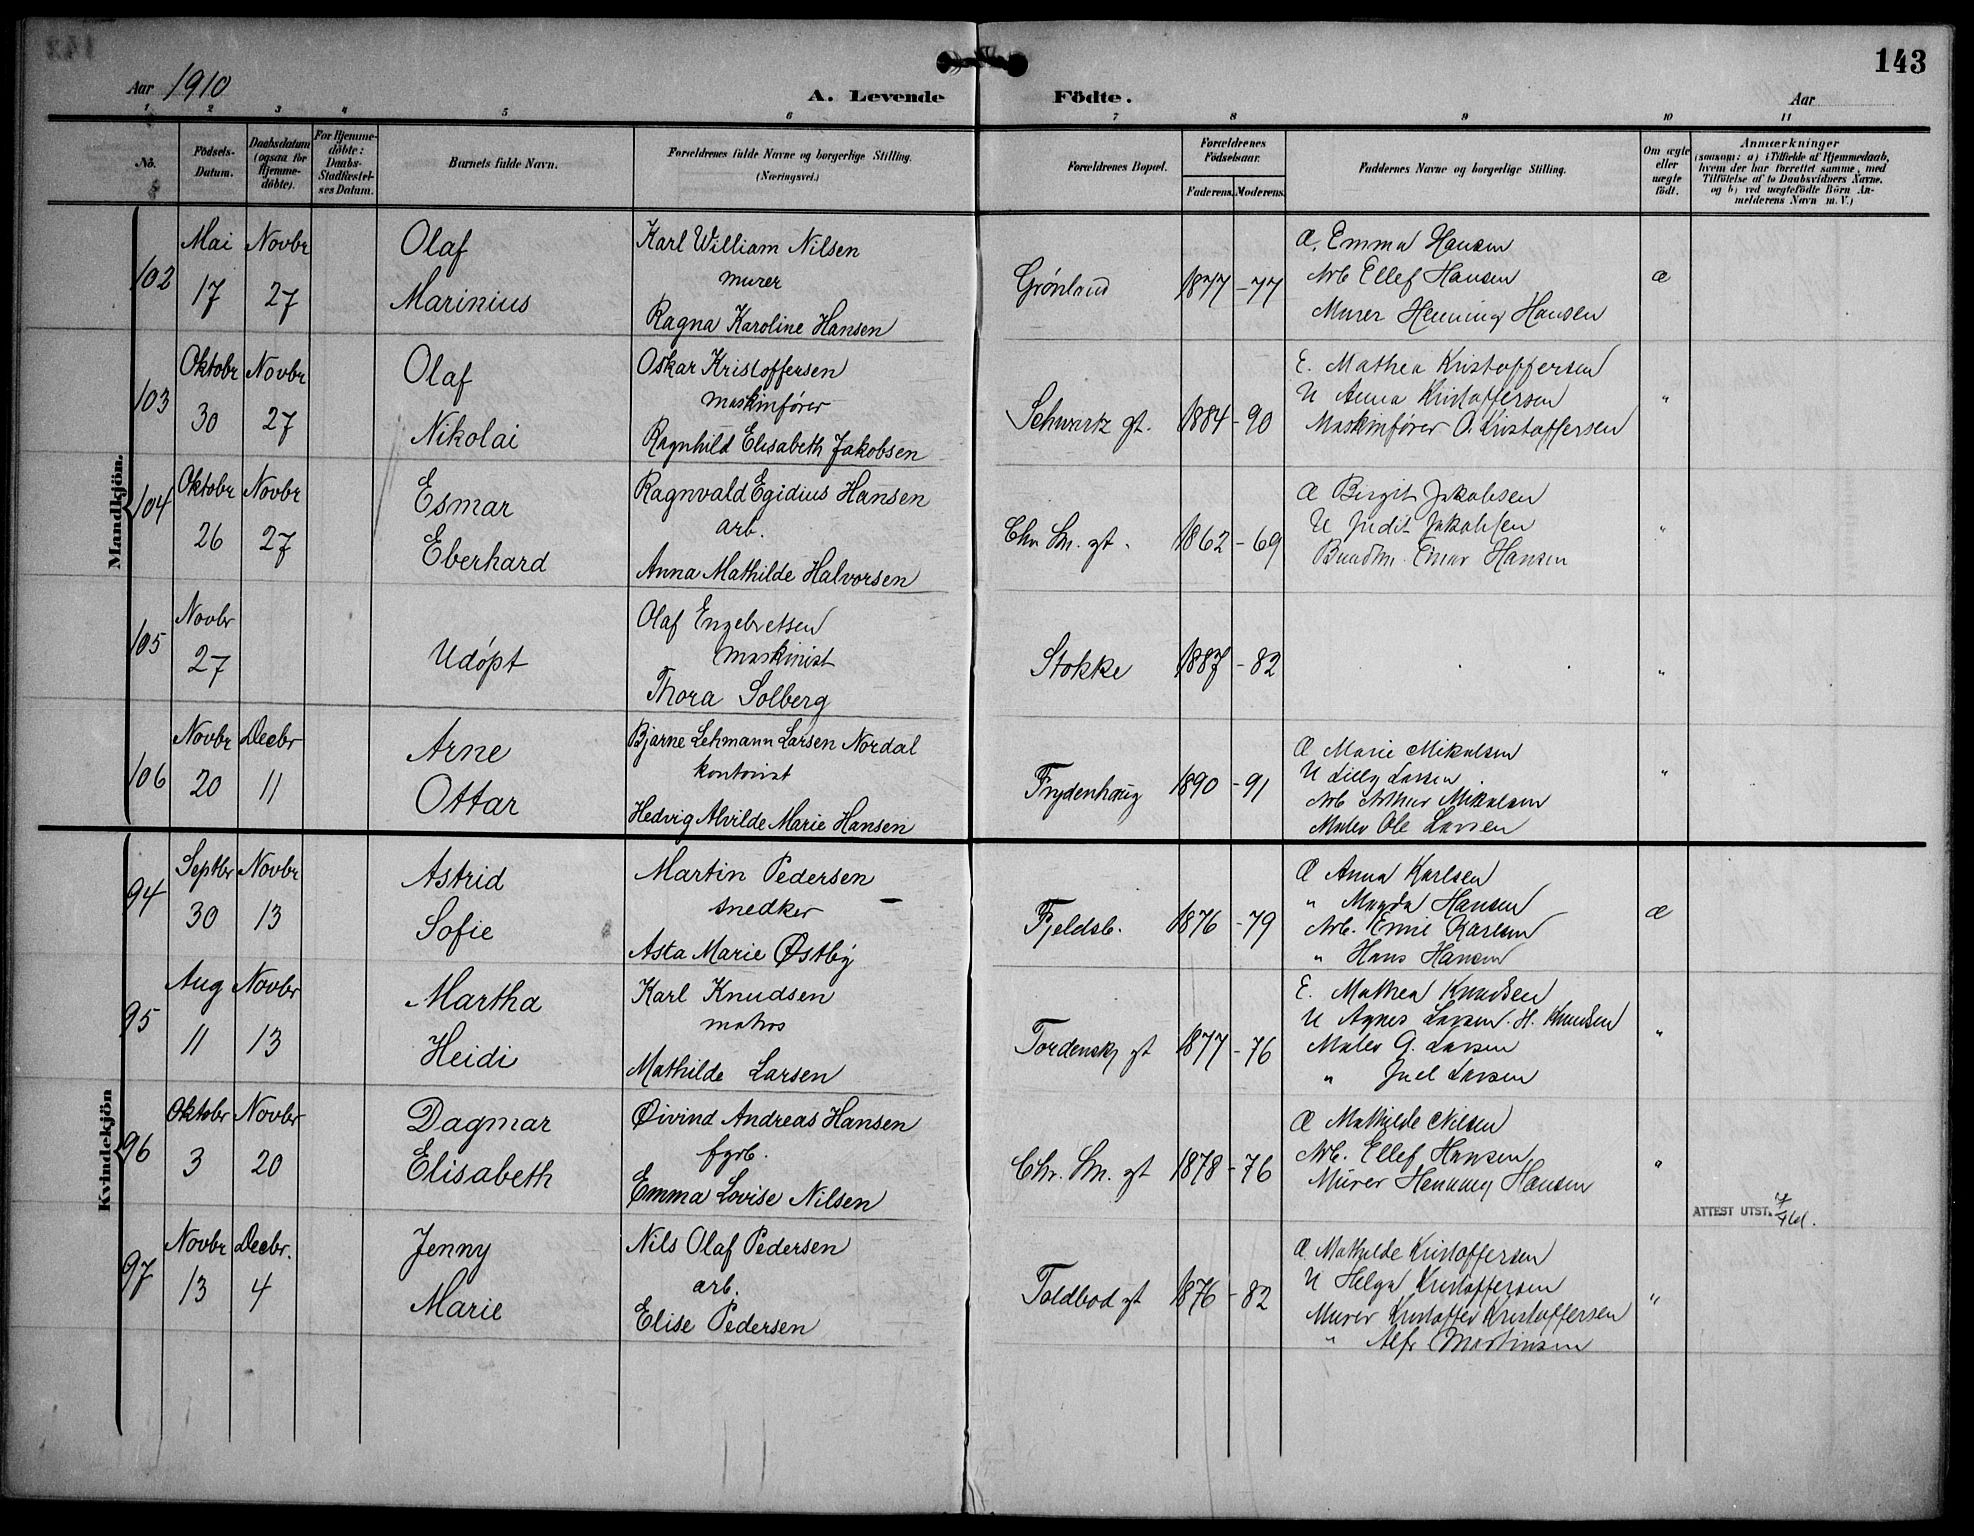 143
Aar 1910
A. Levende Födte.
Aar
1 2 3 4 5 6 7 8 9 10 11
No.
Födsels-Datum.
Daabsdatum (ogsaa for Hjemme-döbte).
For Hjemme-döbte: Daabs-Stadfæstel-ses Datum.
Barnets fulde Navn.
Forældrenes fulde Navne og borgerlige Stilling. (Næringsvei.)
Forældrenes Bopæl.
Forældrenes Födselsaar.
Faderens. Moderens.
Faddernes Navne og borgerlige Stilling.
Om ægte eller uægte födt.
Anmærkninger
(saasom: a) i Tilfælde af Hjemmedaab, hvem der har forrettet samme, med Tilföielse af to Daabsvidners Navne, og b) ved uægtefödte Börn An-melderens Navn m. V.)
Mandkjön.
102 Mai 17 Novbr 27
Olaf Marinius
Karl William Nilsen
murer
Ragna Karoline Hansen
Grønland 1877 - 77
Æ. Emma Hansen
Arb Ellef Hansen
Murer Henning Hansen
æ
103 Oktobr 30 Novbr 27
Olaf Nikolai
Oskar Kristoffersen
maskinfører
Ragnhild Elisabeth Jakobsen
Schwartz gt. 1884 - 90
E. Mathea Kristoffersen
U Anna Kristoffersen
Maskinfører O. Kristoffersen
"
104 Oktobr 26 Novbr 27
Esmar Eberhard
Ragnvald Egidius Hansen
arb.
Anna Mathilde Halvorsen
Chr Sm. gt. 1862 - 69
Æ Birgit Jakobsen
U Judit Jakobsen
Hansen
"
105 Novbr 27
Udøpt
Olaf Engebretsen
maskinist
Thora Solberg
Stokke 1887 - 82
"
106 Novbr 20 Decbr 11
Arne Ottar
Bjarne Lehmann Larsen Nordal
kontorist
Hedvig Alvilde Marie Hansen
Frydenhaug 1890 - 91
Æ Marie Mikalsen
U Lilly Larsen
Arb Arthur Mikalsen
Maler Ole Larsen
"
Kvindekjön
94 Septbr 30 Novbr 13
Astrid Sofie
Martin Pedersen
snedker
Asta Marie Østby
Fjeldsb. 1876 - 79
Æ Anna Karlsen
" Magda Hansen
Arb. Emil Karlsen
" Hans Hansen
æ
95 Aug 11 Novbr 13
Martha Heidi
Karl Knudsen
matros
Mathilde Larsen
Tordenskj gt 1877 - 76
E. Mathea Knudsen
U Agnes Larsen. H. Knudsen
Maler G. Larsen
" Juel Larsen
"
96 Oktobr 3 Novbr 20
Dagmar Elisabeth
Øivind Andreas Hansen
fyrb.
Emma Lovise Nilsen
Chr. Sm. gt 1878 - 76
Æ Mathilde Nilsen
Arb. Ellef Hansen
Murer Henning Hansen
"
97 Novbr 13 Decbr. 4
Jenny Marie
Nils Olaf Pedersen
arb.
Elise Pedersen
Toldbod gt 1876 - 82
Æ Mathilde Kristoffersen
U Helga Kristoffersen
Murer Kristoffer Kristoffersen
" Alfr Martinsen
"
ATTEST UTST.